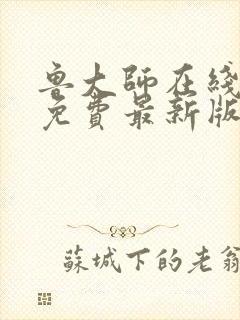 鲁大師在綫
免費最新版
蘇城下的老翁